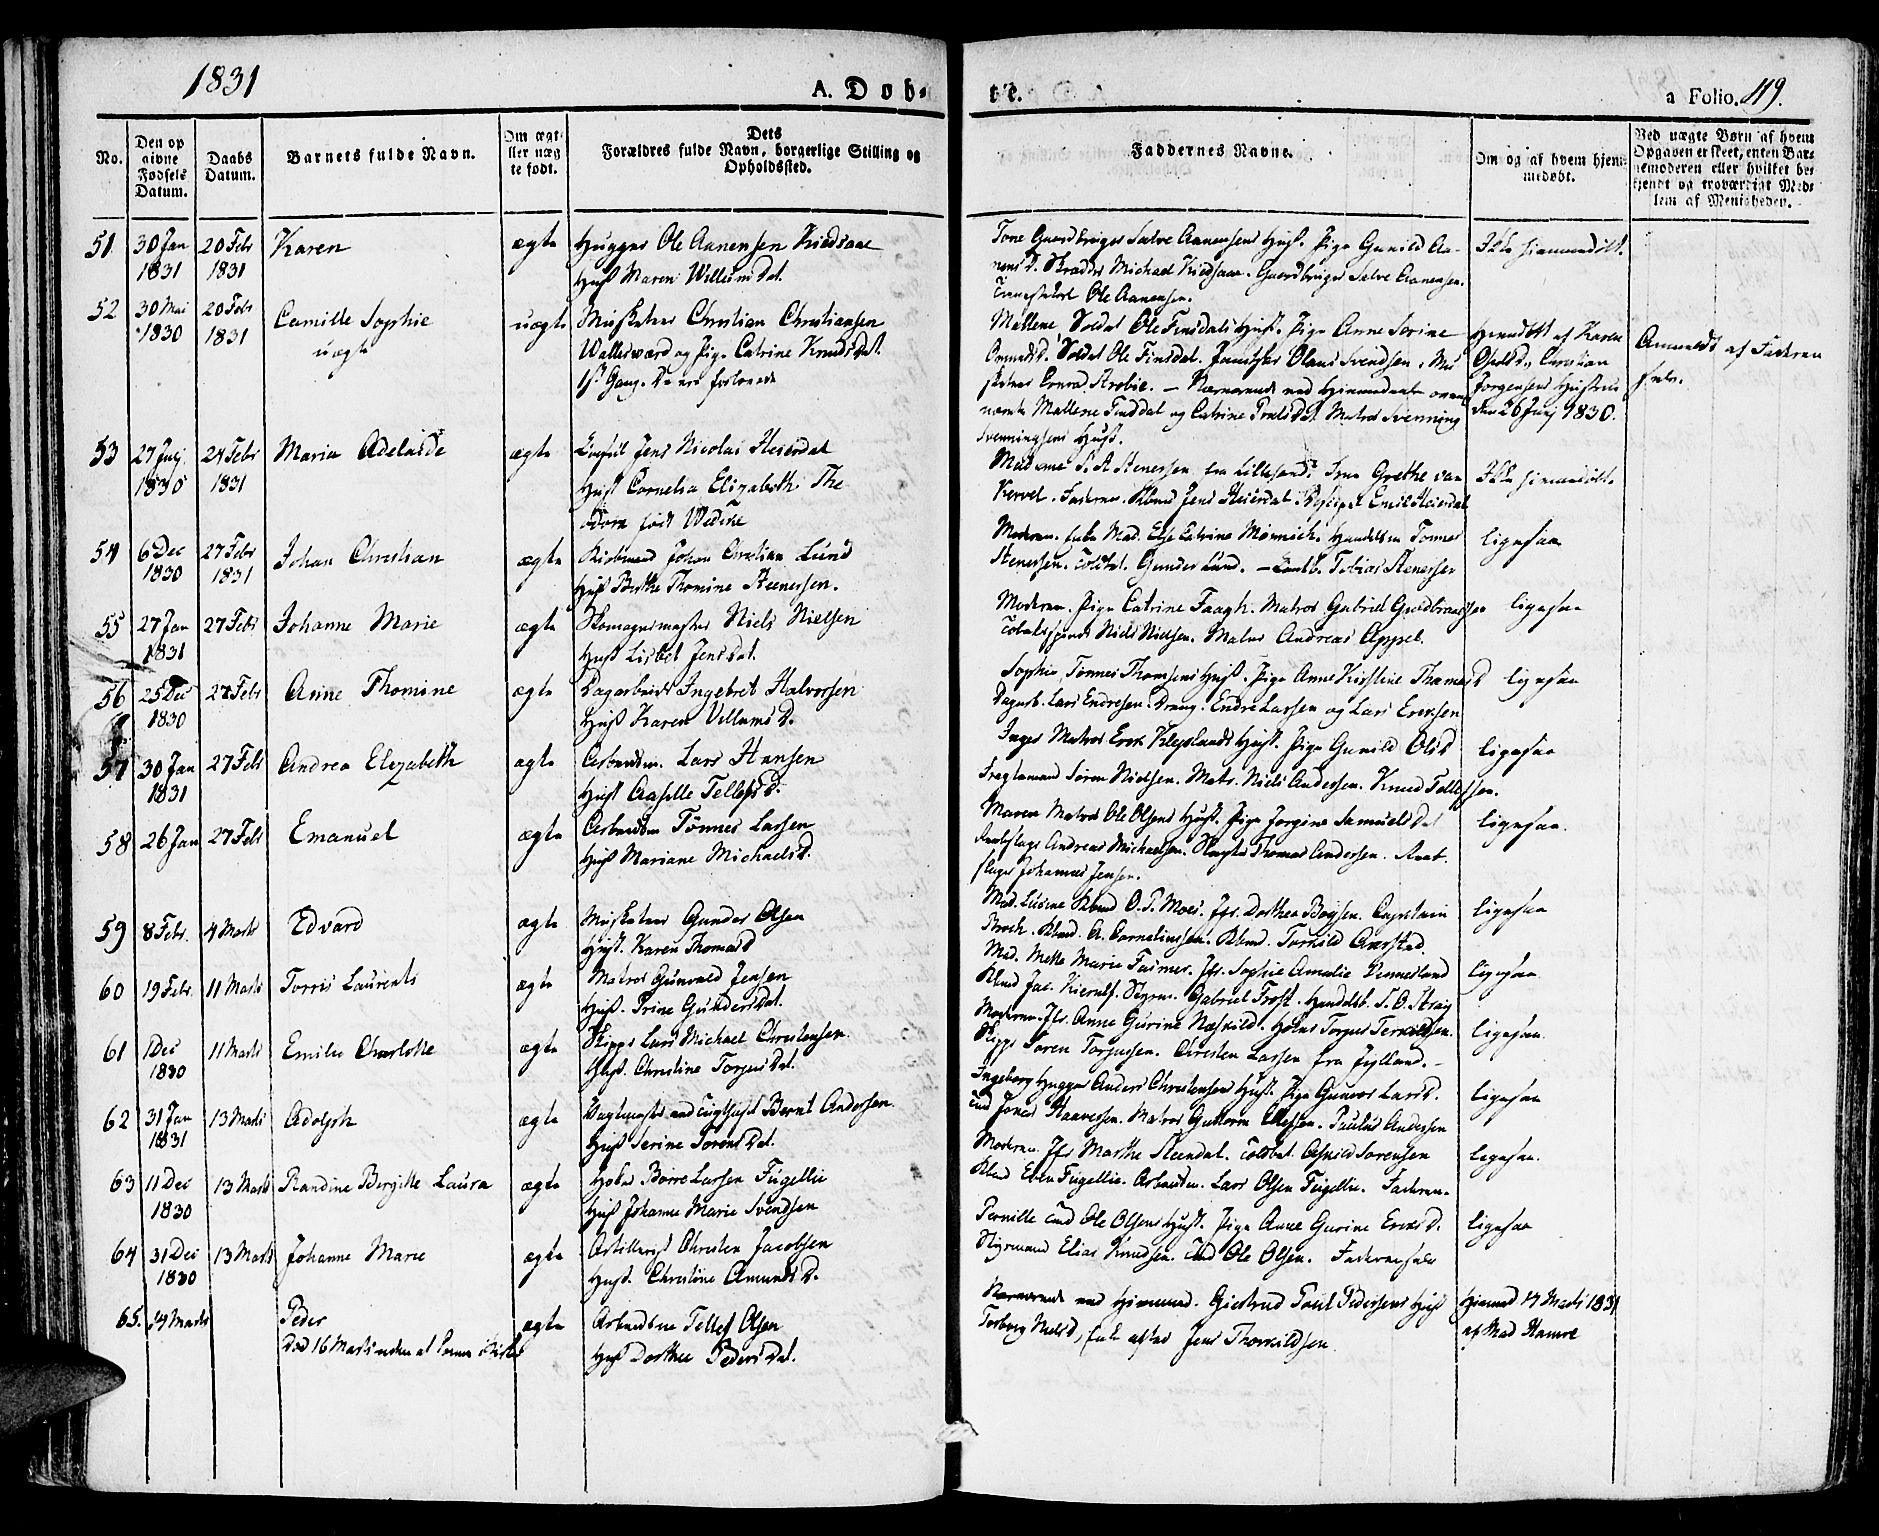 1831
A. Døb-
te.
a Folio. 119.
No.
Den op
givne
Fødsels
Datum.
Daabs
Datum.
Barnets fulde Navn.
Om ægt-
eller uæg
te født.
Dets
Forældres fulde Navn, borgerlige Stilling og
Opholdssted.
Faddernes Navne.
Om og af hvem hjem-
medøbt.
Ved uægte Børn af hvem
Opgaven er skeet, enten Bar-
nemoderen eller hvilket be-
kjendt og troværdigt Med-
lem af Menigheden.
51 30 Jan 20 Febr Karen ægte Hugger Ole Aanensen
1831 1831 Hust Maren Willumsdat.
Tone Gaardbruger Salve Aanensens Hust. Pige Gunild Aa-
nensd. Skrædder Michael Gaardbruger Salve Aanensen.
Ole Aanensen.
Ikke hiemmedöbt.
52 30 Mai 20 Febr Camille Sophie uægte Musketeer Christian Christiansen
1830 1831 uægte og Pige Catrine Knudsdat.
1ste Gang. De ere forlovede
Mallene, Soldat Ole Finsdals Hust. Pige Anne Serine
Soldat Ole Finsdal. Olaus Svendsen. Mus
sketeer Nærværende ved Hjemmedaaben oven
nævnte Mallene Finsdal og Catrine Matros Svenning
Svenningsens Hust.
Hjemdöbt af Karen
Christian
Jorgensens Hustrue
den 26 Juny 1830.
Anmeldt af Faderen
selv.
53 27 July 24 Febr Maria Adelaide ægte Jens Nicolai Heierdal
1830 1831 Hust Cornelia Elizabeth The
odora født Wedeke
Madame S. A. Stenersen fra Lillesand. Grethe van
Kervel. Faderen. Kbmd Jens Heierdal. Emil Heierdal
Ikke hiemmedöbt.
54 6 Dec 27 Febr Johan Christian ægte Kiöbmand Johan Christian Lund
1830 1831 Hust Berthe Thomine Steenersen.
Moderen. Mad. Else Catrine Mörnich. Handelsm Tönnes
Stenersen. Toldbet. Gunder Lund. Tobias Stenersen
ligesaa
55 27 Jan 27 Febr Johanne Marie ægte Skomagermester Niels Nielsen
1831 Hust Lisbet Jensdat.
Moderen. Pige Catrine Faagh. Matros Gabriel Guldbrandsen
Niels Nielsen. Matros Andreas Appel.
ligesaa
56 25 Dec 27 Febr Anne Thomine ægte Dagarbeider Ingebret Halvorsen
1830 Hust Karen Villumsd.
Sophie Tönnes Thomsens Hust. Pige Anne Kirstine Thomesd
Dagarb. Lars Endresen. Dreng. Endre Larsen og Lars Eriksen
ligesaa
57 30 Jan 27 Febr Andrea Elizabeth ægte Arbeidsm. Lars Hansen
1831 Hust Aaselle Tellefsd.
Inger Matros Erik Klepslands Hust. Pige Gunild Olsd.
Fragtemand Sören Nielsen. Matr. Niels Andersen. Knud Tellefsen.
ligesaa
58 26 Jan 27 Febr Emanuel ægte Arbeidsm Tönnes Larsen
Hust Mariane Michaelsd.
Maren Matros Ole Olsens Hust. Pige Jorgine Samuelsdat
Andreas Michaelsen. Thomas Andersen.
Johannes Jensen.
ligesaa.
59 8 Febr. 4 Marts Edvard ægte Musketeer Gunder Olsen
Hust. Karen Thomasd
Mad. Lucine Kbmd O. P. Moes. Jfr. Dorthea Boysen. Capitain
Broch. Kbmd. A. Corneliussen. Kbmd. Torkild Averstad.
ligesaa
60 19 Febr. 11 Marts Torris Laurents ægte Matros Gunvald Jensen
Hust. Trine Gundersdat.
Mad. Mette Marie Fasmer. Jfr. Sophie Amalie Vennesland
Kbmd Jac. Kierulf. Styrm. Gabriel Frost. Handelsb. S. O. Straij
ligesaa
61 1 Dec 11 Marts Emilie Charlotte ægte Skipper Lars Michael Christensen.
1830 Hust. Christine Torjusdat.
Moderen. Jfr. Anne Gurine Næskild. Torjus Terkildsen.
Skipper Soren Torjussen. Christen Larsen fra Jylland.
ligesaa.
62 31 Jan 13 Marts Adolph ægte Vagtmester ved Tugthuset Bernt Andersen.
1831 Hust Serine Sörensdat.
Ingeborg Hugger Anders Christensens Hust. Pige Gunvor Larsd.
Jonas Haavorsen. Matros Guttorm Ellefsen. Paulus Andersen
ligesaa
63 11 Dec 13 Marts Randine Bergitte Laura ægte Börre Larsen Fugellie
1830 Hust Johanne Marie Svendsen
Moderen. Jfr Marthe Steendal. Toldbet. Askild Sorensen
Kbmd Even Fugellie. Arbeidsm. Lars Olsen Fugellie. Faderen.
ligesaa.
64 31 Dec 13 Marts Johanne Marie ægte Artillerist Christen Jacobsen
1830 Hust. Christine Amundsd.
Pernille Ole Olsens Hust. Pige Anne Gurine Eriksd.
Styrmand Elias Knudsen. Ole Olsen. Faderen selv
ligesaa
65. 14 Marts Peder ægte Arbeidsm Tellef Olsen
Död 16 Marts uden at komme i Kirke Hust Dorthee Pedersdat.
Nærværende ved Hjemmed. Giertrud Poul Pedersens Hust
Torborg Nielsd, Jens Thorkildsen
Hjemmed 14 Marts 1831
af Mad Hamre